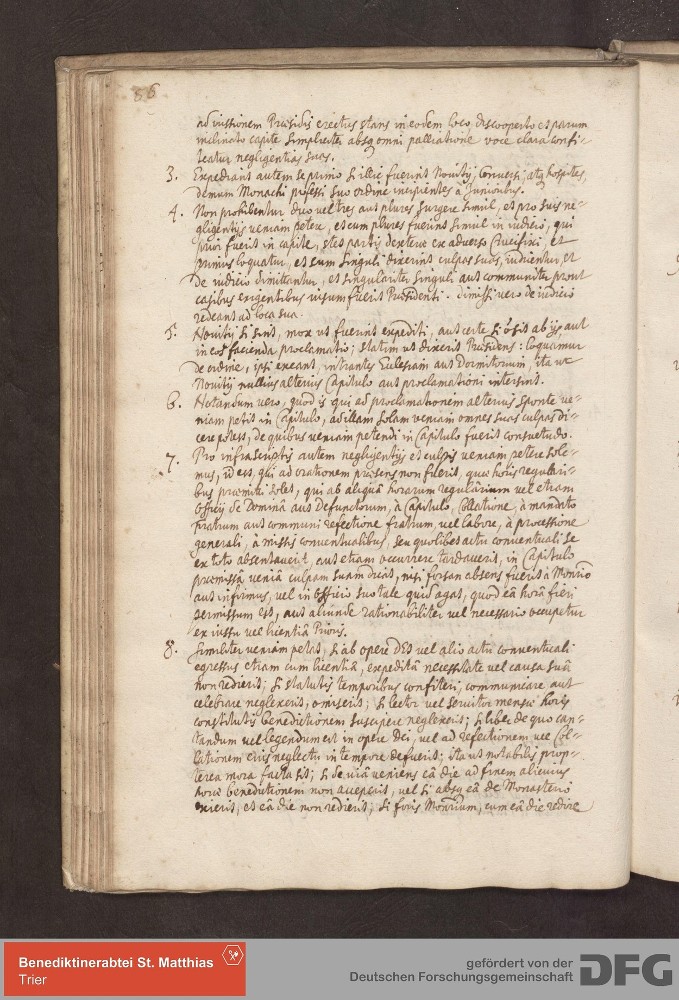 86
ad iussionem Præsidis erectus stans in eodem loco discooperto et parum
inclinato capite simpliciter absq omni palliatione voce clara confi-
teatur negligentias suas.
3. Expediant autem se primo si illic fuerint Novitij, Conversi, atq hospites,
demum Monachi professi suo ordine incipientes à Junioribus.
4. Non prohibentur duo vel tres aut plures surgere simul, et pro suis ne-
gligentijs veniam petere, et cum plures fuerint simul in iudicio, qui
prior fuerit in capite, stet partis dexteræ ex adverso Crucifixi, et
primus loquatur, et cum singuli dixerint culpas suas, iudicentur, et
de iudicio dimittantur, et singulariter singuli aut communiter prout
casibus exigentibus visum fuerit Præsidenti. Dimissi vero de iudicio
redeant ad loca sua.
5. Novitij si sint, mox ut fuerint expediti, aut certe si ab ijs aut
in eos facienda proclamatio; statim ut dixerit Præsidens: Loquamur
de ordine, ipsi exeant, intrantes Ecclesiam aut Dormitorium, ita ut
Novitij nullius alterius Capitulo aut proclamationi intersint.
6. Notandum vero, quod is qui ad proclamationem alterius sponte ve-
niam petit in Capitulo, ad illam solam veniam omnes suas culpas di-
cere potest, de quibus veniam petendi in Capitulo fuerit consuetudo.
7. Pro infrascriptis autem negligentijs et culpis veniam petere sole-
mus, id est, qui ad orationem præsens non fuerit, quæ horis regulari-
bus præmitti solet, qui ab aliquâ horarum regularium vel etiam
Officij de Dominâ aut Defunctorum, à Capitulo, Collatione, à mandato
fratrum aut communi refectione fratrum, vel labore, à processione
generali, à missis conventualibus, seu quolibet actu conventuali se
ex toto absentaverit, aut etiam occurrere tardaverit, in Capitulo
præmissâ veniâ culpam suam dicat, nisi forsan absens fuerit à Monrio
aut infirmus, vel in officio suo tale quid agat, quod eâ horâ fieri
permissum est, aut aliunde rationabiliter vel necessario occupetur
ex iussu vel licentiâ Prioris.
8. Similiter veniam petat, si ab opere DEI vel alio actu conventuali
egressus etiam cum licentiâ, expeditâ necessitate vel causa suâ
non redierit; si statutis temporibus confiteri, communicare aut
celebrare neglexerit, omiserit; si lector vel servitor mensæ horis
constitutis benedictionem suscipere neglexerit; si liber de quo can-
tandum vel legendum est in opere dei, vel ad refectionem vel Col-
lationem eius neglectu in tempore defuerit; ita ut notabilis prop-
terea mora facta sit; si de viâ veniens eâ die ad finem alicuius
horæ benedictionem non acceperit, vel si absq eâ de Monasterio
exierit, et eâ die non redierit, si foris Monrium, cum eâ die redire
Benediktinerabtei St. Matthias
Trier
gefördert von der
Deutschen Forschungsgemeinschaft
DFG